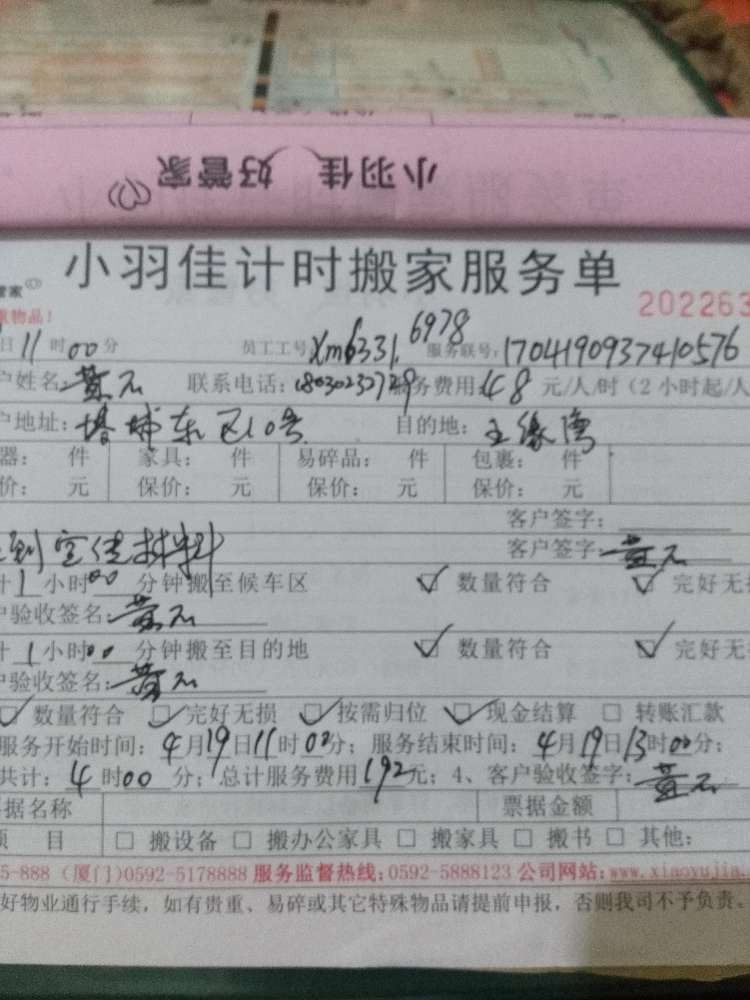 小羽佳 好管家
小羽佳计时搬家服务单
管家
重物品！
202263
日11时00分 员工工号:Xm6331. 6978 服务联号:1704190937410576
户姓名: 黄 联系电话: 服务费用:48元/人/时（2小时起/人
户地址: 塔埔东区10号 目的地:
器： 件 家具： 件 易碎品： 件 包裹： 件
价： 元 保价： 元 保价： 元 保价： 元
客户签字：
到 材料 客户签字: 黄
计1小时00分钟搬至候车区 数量符合 完好无损
户验收签名: 黄
计1小时00分钟搬至目的地 数量符合 完好无
户验收签名: 黄
数量符合 完好无损 按需归位 现金结算 转账汇款
服务开始时间：4月19日11时00分；服务结束时间：4月19日13时00分；
共计：4时00分；总计服务费用192元；4、客户验收签字: 黄
据名称 票据金额
项 目 搬设备 搬办公家具 搬家具 搬书 其他：
5-888（厦门）0592-5178888 服务监督热线：0592-5888123 公司网站：www.xiaoyujia.
好物业通行手续，如有贵重、易碎或其它特殊物品请提前申报，否则我司不予负责。